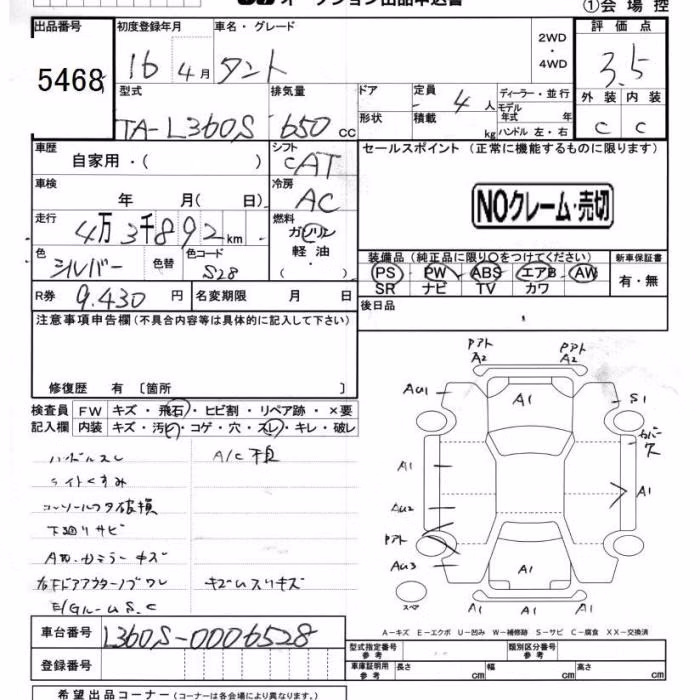 オークション出品申込書
①会場控
出品番号 5468
初度登録年月 16 4月
車名・グレード タント
2WD
・
4WD
評価点 3.5
外装 C
内装 C
型式 TA-L360S
排気量 650 cc
ドア
形状
定員 4人
積載 kg
ディーラー・並行
モデル年式 年
ハンドル 左・右
車歴 自家用・( )
シフト CAT
セールスポイント (正常に機能するものに限ります)
NOクレーム・売切
車検 年 月( 日)
冷房 AC
走行 4万3千892km
燃料 ガソリン
軽油
・( )
色 シルバー 色替
色コード S28
R券 9.430円
名変期限 月 日
装備品 (純正品に限り○をつけてください)
PS PW ABS エアB AW
SR ナビ TV カワ
新車保証書
有・無
後日品
注意事項申告欄(不具合内容等は具体的に記入して下さい)
修復歴 有〔箇所 〕
検査員記入欄
FW キズ・飛石・ヒビ割・リペア跡・×要
内装 キズ・汚れ・コゲ・穴・スレ・キレ・破レ
ハンドルスレ A/C不良
ライトくすみ
コンソールフタ破損
下廻りサビ
キズ
右Fドアアウターノブワレ キズムスリキズ
E/GルームS.C
Pアト A2
Pアト A2
AU1
A1
S1
カバー欠
A1
A1
AU2
Pアト
AU3
A1
スペア
A1 A1 A1
A-キズ E-エクボ U-凹み W-補修跡 S-サビ C-腐食 XX-交換済
車台番号 L360S-0006528
登録番号
型式指定番号 参考
類別区分番号 参考
車庫証明用 参考 長さ cm 幅 cm 高さ cm
希望出品コーナー (コーナーは各会場により異なります。)